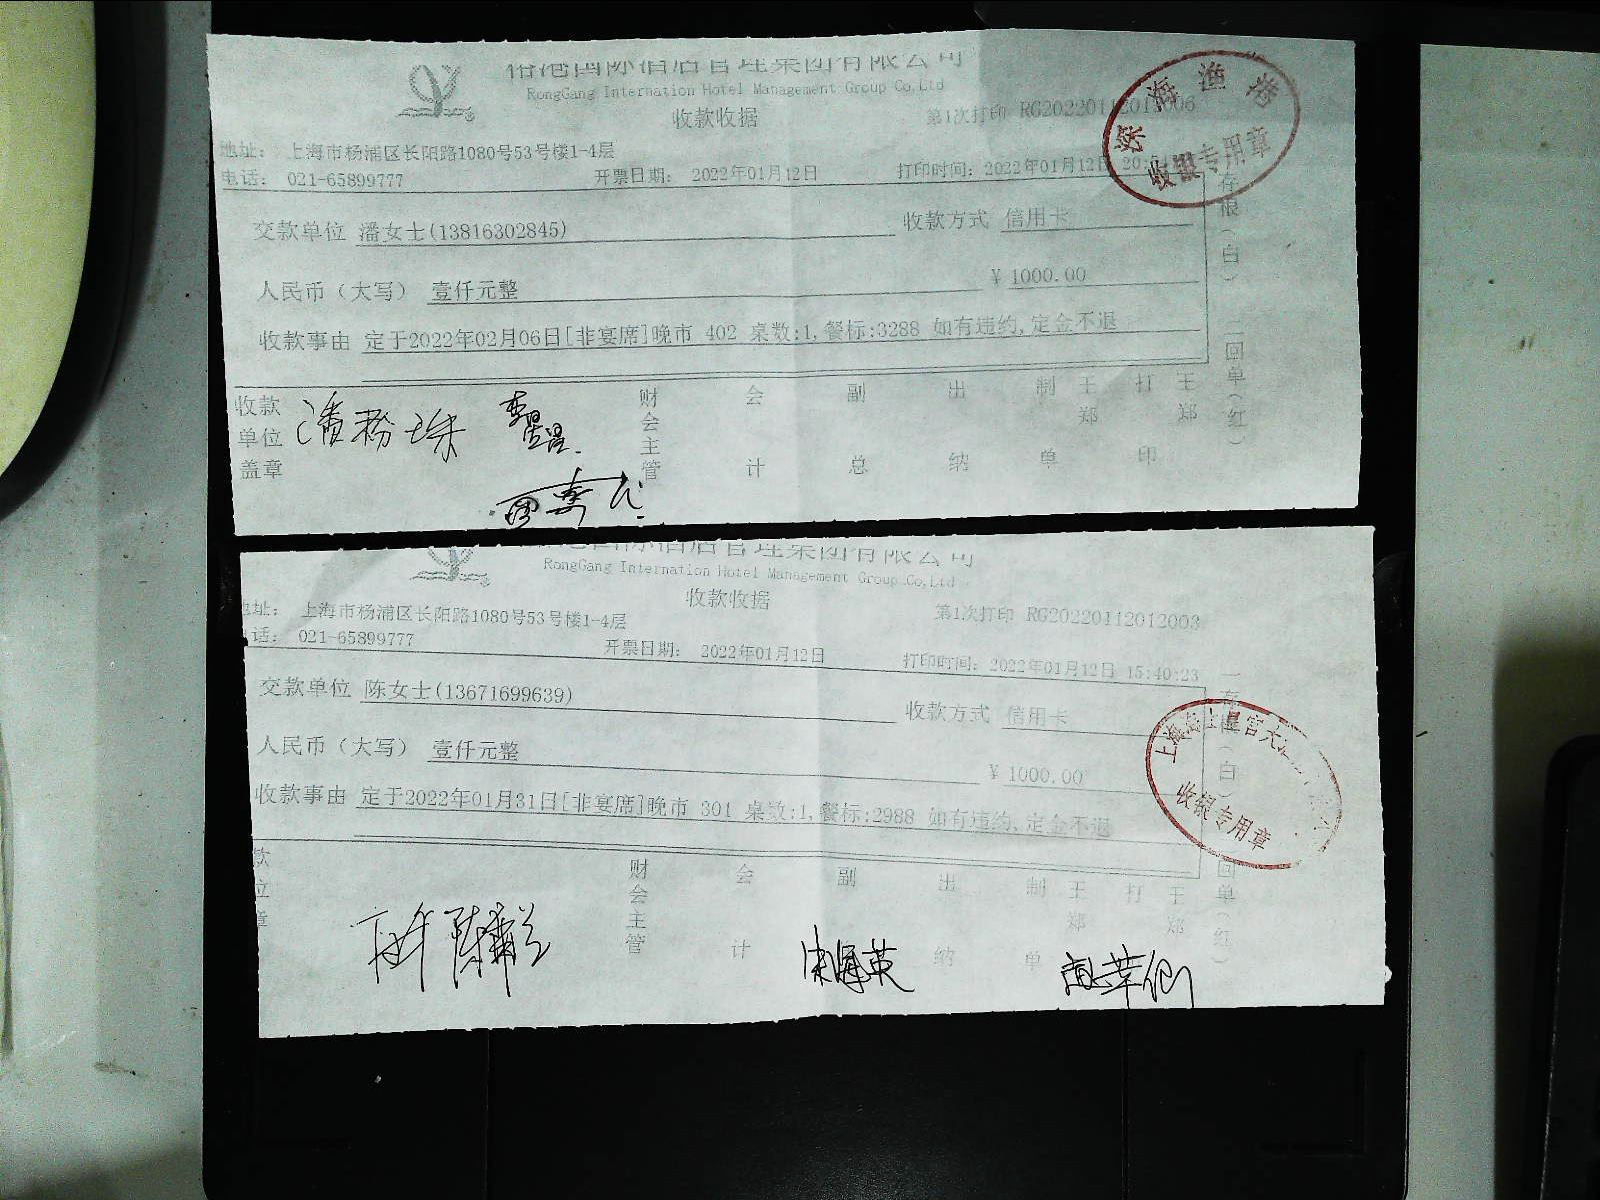 国际酒店管理集团有限公司
RongGang International Hotel Management Group Co,Ltd
收款收据
第1次打印
地址： 上海市杨浦区长阳路1080号53号楼1-4层
电话： 021-65899777
开票日期： 2022年01月12日
打印时间：2022年01月12日
深海渔港
收银专用章
交款单位 潘女士(13816302845)
收款方式 信用卡
人民币（大写） 壹仟元整
￥ 1000.00
收款事由 定于2022年02月06日[非宴席]晚市 402 桌数:1,餐标:3288 如有违约,定金不退
存根（白） 二回单（红）
收款单位盖章
潘粉珠
财会主管
会计
副总
出纳
制单
王郑
打印
王郑
国际酒店管理集团有限公司
RongGang International Hotel Management Group Co,Ltd
收款收据
第1次打印 RG20220112012003
地址： 上海市杨浦区长阳路1080号53号楼1-4层
话： 021-65899777
开票日期： 2022年01月12日
打印时间：2022年01月12日 15:40:23
交款单位 陈女士(13671699639)
收款方式 信用卡
人民币（大写） 壹仟元整
￥ 1000.00
收款事由 定于2022年01月31日[非宴席]晚市 301 桌数:1,餐标:2988 如有违约,定金不退
一存（白） 回单（红）
收银专用章
款位章
财会主管
会计
副
出纳
制单
王郑
打
王郑